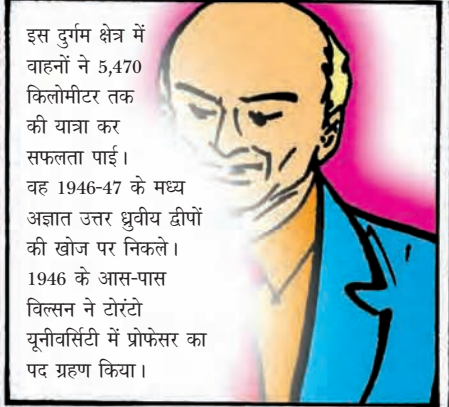 इस दुर्गम क्षेत्र में
वाहनों ने 5,470
किलोमीटर तक
की यात्रा कर
सफलता पाई।
वह 1946-47 के मध्य
अज्ञात उत्तर ध्रुवीय द्वीपों
की खोज पर निकले।
1946 के आस-पास
विल्सन ने टोरंटो
यूनीवर्सिटी में प्रोफेसर का
पद ग्रहण किया।